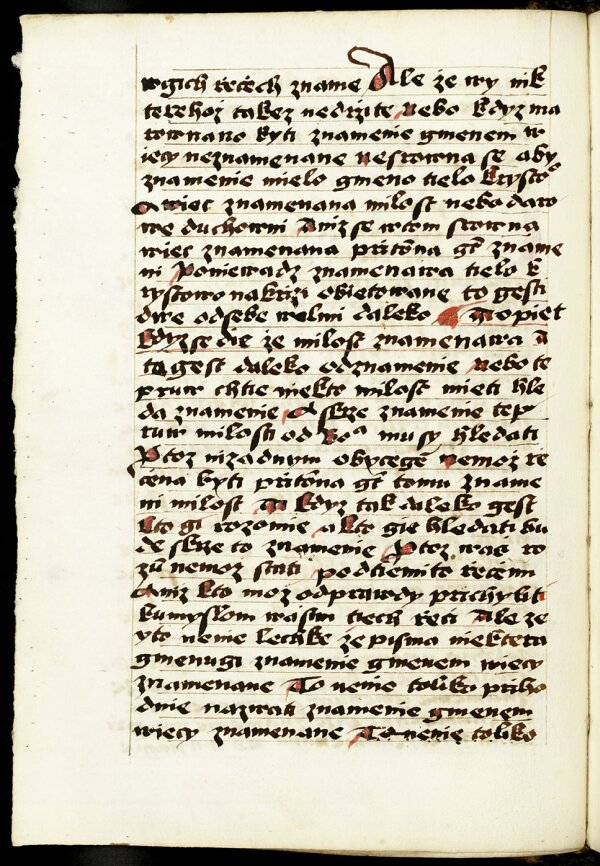 wgich řečech zname Ale že wy nik
terehož takez nedržite nebo kdyz ma
rownano byti znamenie gmenem w
iecy neznamenane nesrowna se aby
znamenie mielo gmeno tielo krysto°
a wiec znamenana milost nebo daro
we duchowni Aniz se w tom srowna
wiec znamenana přitōna gt zname
ni Poniewadz znamenawa tielo k
rystowo na krzizi obietowane to gesti
dwe od sebe welmi daleko A opiet
kdyz se die že milost znamenawa a
ta gest daleko od znamenie nebo te
prww chtie niekto milost mieti hle
da znamenie A skrze znamenie tep
rww milosti od boa musy hledati
Protoz nizadnym obyčegē nemoz ře
čena byti přitōna gt tomu zname
ni milost A kdyz tak daleko gest
kto gi rozomie a kto gie hledati bu
de skrze to znamenie Protoz was ro
zū nemoz stati pod tiemito řečem
Aniz kto moz od prawdy prichyliti
k umyslom wasim tiech řeči Ale že
yto nenie lechke že pisma niektera
gmenugi znamenie gmenem wiecy
znamenane To nenie toliko přiho
dnie nazwati znamenie gmenem
wiecy znamenane To nenie toliko